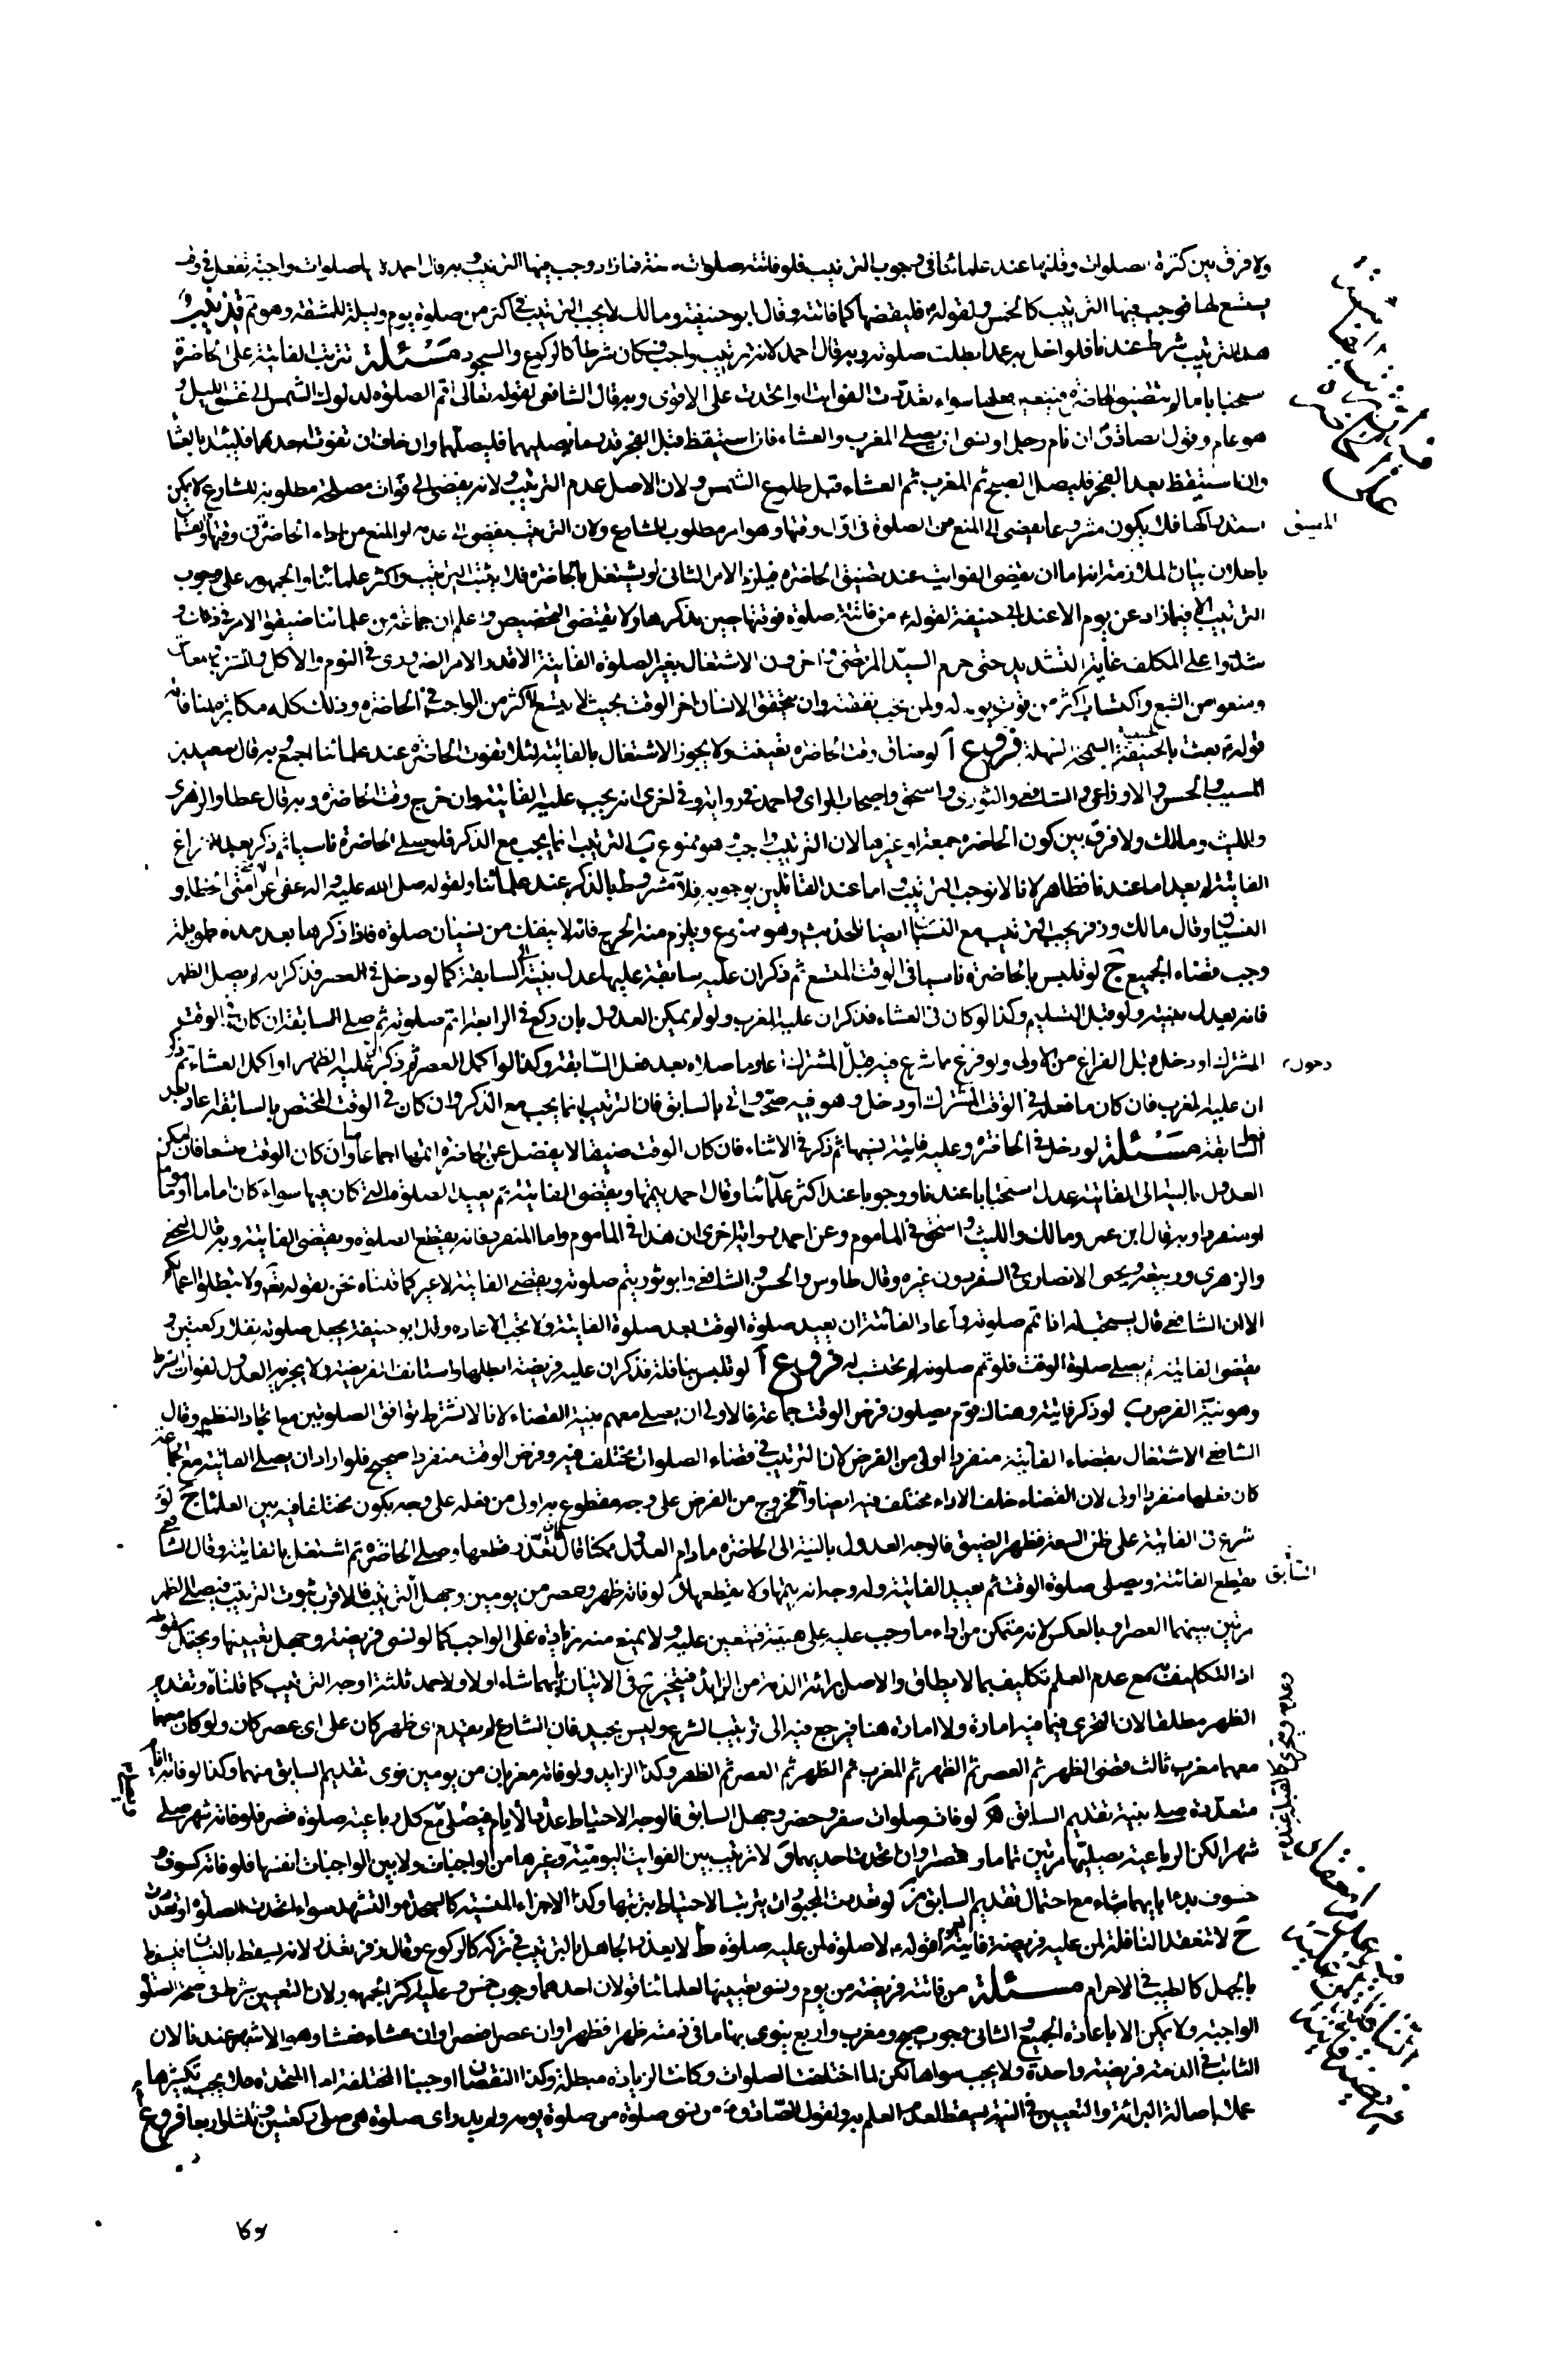 ولا فرق بين كثرة الصلوات وقلتها عند علمائنا في وجوب الترتيب فلو فاتته صلوات سنة فما زاد وجب فيها الترتيب وبه قال احمد لانها صلوات واجبة تفعل في وقت
يتسع لها فوجب فيها الترتيب كالخمس ولقوله فليقضها كما فاتته وقال ابو حنيفة ومالك لا يجب الترتيب في اكثر من صلوة يوم وليلة للمشقة وهو ثم قد نيب
هذا الترتيب شرط عندنا فلو اخل به عمدا بطلت صلوته وبه قال احمد لانه ترتيب واجب فكان شرطا كالركوع والسجود مسئلة ترتيب الفايتة على الحاضرة
مستحبا ما لم يتضيق الحاضرة فيتعين فعلها سواء تعددت الفوايت او اتحدت على الاقوى وبه قال الشافعي لقوله تعالى اقم الصلوة لدلوك الشمس الى غسق الليل و
هو عام وقول الصادق ان نام رجل او نسى ان يصلى المغرب والعشاء فان استيقظ قبل الفجر قدر ما يصليهما فليصلهما وان خاف ان تفوت احديهما فليبدا بالعشا
وان استيقظ بعد الفجر فليصل الصبح ثم المغرب ثم العشاء قبل طلوع الشمس ولان الاصل عدم الترتيب ولانه يفضى الى فوات مصلحة مطلوبة للشارع لا يمكن
استدراكها فلا يكون مشروعا يفضى الى المنع من الصلوة في اول وقتها وهو امر مطلوب للشارع ولان الترتيب يفضى الى عدمه او المنع من اداء الحاضرة في وقتها والقسما
باطلان بيان الملازمة انه اما ان يقضى الفوايت عند تضيق الحاضرة فيلزم الامر الثانى او يشتغل بالحاضرة فلا يثبت الترتيب واكثر علمائنا والجمهور على وجوب
الترتيب الا فيما زاد عن يوم الا عند ابى حنيفة لقوله من فاتته صلوة فوقتها حين يذكرها ولا يقتضى التخصيص واعلم ان جماعة من علمائنا ضيقوا الامر في ذلك و
شددوا على المكلف غاية التشديد حتى حرم السيد المرتضى واخرون الاشتغال بغير الصلوة الفايتة الا قدر الامر الضرورى في النوم والاكل والشرب
ومنعوا من الشبع واكتساب اكثر من قوت يومه له ولمن تجب نفقته وان يتحقق الانسان اخر الوقت بحيث لا يتسع لاكثر من الواجب في الحاضرة وذلك كله مكابرة
قوله بعثت بالحنيفية السمحة السهلة فروع آ لو ضاق وقت الحاضرة تعينت ولا يجوز الاشتغال بالفايتة لئلا تفوت الحاضرة عند علمائنا اجمع وبه قال سعيد بن
المسيب والحسن والاوزاعي والشافعي والثورى واسحق واصحاب الراى واحمد في رواية وفي اخرى انه يجب عليه الفايتة وان خرج وقت الحاضرة وبه قال عطا والزهرى
والليث ومالك ولا فرق بين كون الحاضرة جمعة او غيرها لان الترتيب واجب وهو ممنوع ب الترتيب انما يجب مع الذكر فلو صلى الحاضرة ناسيا ثم ذكر بعد الفراغ
الفايتة لم يعد اما عندنا فظاهر لانا لا نوجب الترتيب واما عند القائلين بوجوبه فلانه مشروط بالذكر عند علمائنا ولقوله صلى الله عليه واله عفى عن امتى الخطاء و
النسيان وقال مالك وزفر يجب الترتيب مع النسيان ايضا للحديث وهو ممنوع ويلزم منه الحرج فانه لا ينفك من نسيان صلوة فاذا ذكرها بعد مدة طويلة
وجب قضاء الجميع ج لو تلبس بالحاضرة ناسيا في الوقت المتسع ثم ذكر ان عليه سابقة عليها عدل بنيته الى السابقة كما لو دخل في العصر فذكر انه لم يصل الظهر
فانه يعدل بنيته ولو قبل التسليم وكذا لو كان في العشاء فذكر ان عليه المغرب ولو لم يمكن العدول بان ركع في الرابعة اتم صلوته ثم صلى السابقة ان كان في الوقت
المشترك او دخل قبل الفراغ من الاولى ولو فرغ مما شرع فيه قبل المشترك اعاد ما صلاه بعد فعل السابقة وكذا لو اكمل العصر ثم ذكر ان عليه الظهر او اكمل العشاء ثم ذكر
ان عليه المغرب فان كان ما فعله في الوقت المشترك او دخل وهو فيه صح واتى بالسابق فان الترتيب انما يجب مع الذكر وان كان في الوقت المختص بالسابقة اعاد بعد
فعل السابقة مسئلة لو دخل في الحاضرة وعليه فايتة نسيها ثم ذكر في الاثناء فان كان الوقت ضيقا لا يفضل عن الحاضرة اتمها اجماعا وان كان الوقت متسعا فان امكن
العدول بالنية الى الفايتة عدل استحبابا عندنا ووجوبا عند اكثر علمائنا وقال احمد يتمها ويقضى الفايتة ثم يعيد الصلوة التى كان فيها سواء كان اماما او ماموما
او منفردا وبه قال ابن عمر ومالك والليث واسحق في الماموم وعن احمد رواية اخرى ان هذا في الماموم واما المنفرد فانه يقطع الصلوة ويقضى الفايتة وبه قال النخعى
والزهرى وربيعة ويحيى الانصارى في السفر دون غيره وقال طاوس والحسن والشافعي وابو ثور يتم صلوته ويقضى الفايتة لا غير كما قلناه نحن لقوله تعالى ولا تبطلوا اعمالكم
الا ان الشافعي قال يستحب له اذا تم صلوته واعاد الفائتة ان يعيد صلوة الوقت بعد صلوة الفايتة ولا تجب الاعادة وقال ابو حنيفة يجعل صلوته نفلا ركعتين و
يقضى الفايتة ثم يصلى صلوة الوقت فلو تمم صلوته لم تحتسب له فروع آ لو تلبس بنافلة فذكر ان عليه فريضة ابطلها واستانف الفريضة ولا يجزيه العدول لفوات الشرط
وهو نية الفرض ب لو ذكر فايتة وهناك قوم يصلون فرض الوقت جماعة فالاولى ان يصلى معهم بنية القضاء لانا لا نشترط توافق الصلوتين مع اتحاد النظم وقال
الشافعي الاشتغال بقضاء الفايتة منفردا اولى من الفرض لان الترتيب في قضاء الصلوات مختلف فيه وفرض الوقت منفردا صحيح فلو اراد ان يصلى الفائتة مع الجماعة
كان فعلها منفردا اولى لان القضاء خلف الاداء مختلف فيه ايضا والخروج من الفرض على وجه مقطوع به اولى من فعله على وجه يكون مختلفا فيه بين العلماء ج لو
شرع في الفايتة على ظن السعة فظهر الضيق فالوجه العدول بالنية الى الحاضرة ما دام العدول ممكنا فان تعذر قطعها وصلى الحاضرة ثم اشتغل بالفايتة وقال الشافعي
يقطع الفائتة ويصلى صلوة الوقت ثم يعيد الفائتة وله وجه انه يتمها ولا يقطعها د لو فاته ظهر وعصر من يومين وجهل الترتيب فالاقرب ثبوت الترتيب فيصلى الظهر
مرتين بينهما العصر او بالعكس لانه متمكن من اداء ما وجب عليه على هيئته فتعين عليه ولا يمنع منه زيادة على الواجب كما لو نسى فريضة وجهل تعيينها ويحتمل سقوطه
اذ التكليف مع عدم العلم تكليف بما لا يطاق والاصل برائة الذمة من الزائد فيتخير في الاتيان بايهما شاء اولا ولاحمد ثلثة اوجه الترتيب كما قلناه وتقديم
الظهر مطلقا لان التحرى فيما فيه امارة ولا امارة هنا فيرجع فيه الى ترتيب الشرع وليس بجيد فان الشارع لم يقدم اى ظهر كان على اى عصر كان ولو كان
معهما مغرب ثالث قضى الظهر ثم العصر ثم الظهر ثم المغرب ثم الظهر ثم العصر ثم الظهر وكذا الزايد ولو فاته مغربان من يومين نوى تقديم السابق منهما وكذا لو فاته ايام
متعددة صلى بنية تقديم السابق ه لو فاته صلوات سفر وحضر وجهل السابق فالوجه الاحتياط عدد الايام فيصلى مع كل رباعية صلوة قصر فلو فاته شهر صلى
شهرا لكن الرباعية يصليها مرتين تماما وقصرا وان اتحدت احديهما و لا ترتيب بين الفوايت اليومية وغيرها من الواجبات ولا بين الواجبات انفسها فلو فاته كسوف و
خسوف بدا بايهما شاء مع احتمال تقديم السابق ز لو تعددت المجبورات ترتب الاحتياط بترتبها وكذا الاجزاء المنسية كالسجدة والتشهد سواء اتحدت الصلوة او تعددت
ح لا تنعقد النافلة لمن عليه فريضة فايتة لقوله لا صلوة لمن عليه صلوة ط لا يعذر الجاهل بالترتيب في تركه كالركوع وقال زفر يعذر لانه يسقط بالنسيان فيسقط
بالجهل كالطيب في الاحرام مسئلة من فاتته فريضة من يوم ونسى تعيينها لعلمائنا قولان احدهما وجوب خمس وعليه اكثر الجمهور لان التعيين شرط في صحة الصلوة
الواجبة ولا يمكن الا باعادة الجميع والثانى وجوب صبح ومغرب واربع ينوى بها ما في ذمته ظهرا فظهرا وان عصرا فعصرا وان عشاء فعشاء وهو الاشهر عندنا لان
الثابت في الذمة فريضة واحدة ولا يجب سواها لكن لما اختلفت الصلوات وكانت الزيادة مبطلة وكذا النقصان اوجبنا المختلفة اما المتحدة فلا يجب تكثيرها
عملا باصالة البرائة والتعيين في النية يسقط لعدم العلم به ولقول الصادق من نسى صلوة من صلوة يومه ولم يدر اى صلوة هى صلى ركعتين وثلثا واربعا فروع
المضيق
دخول
السابق